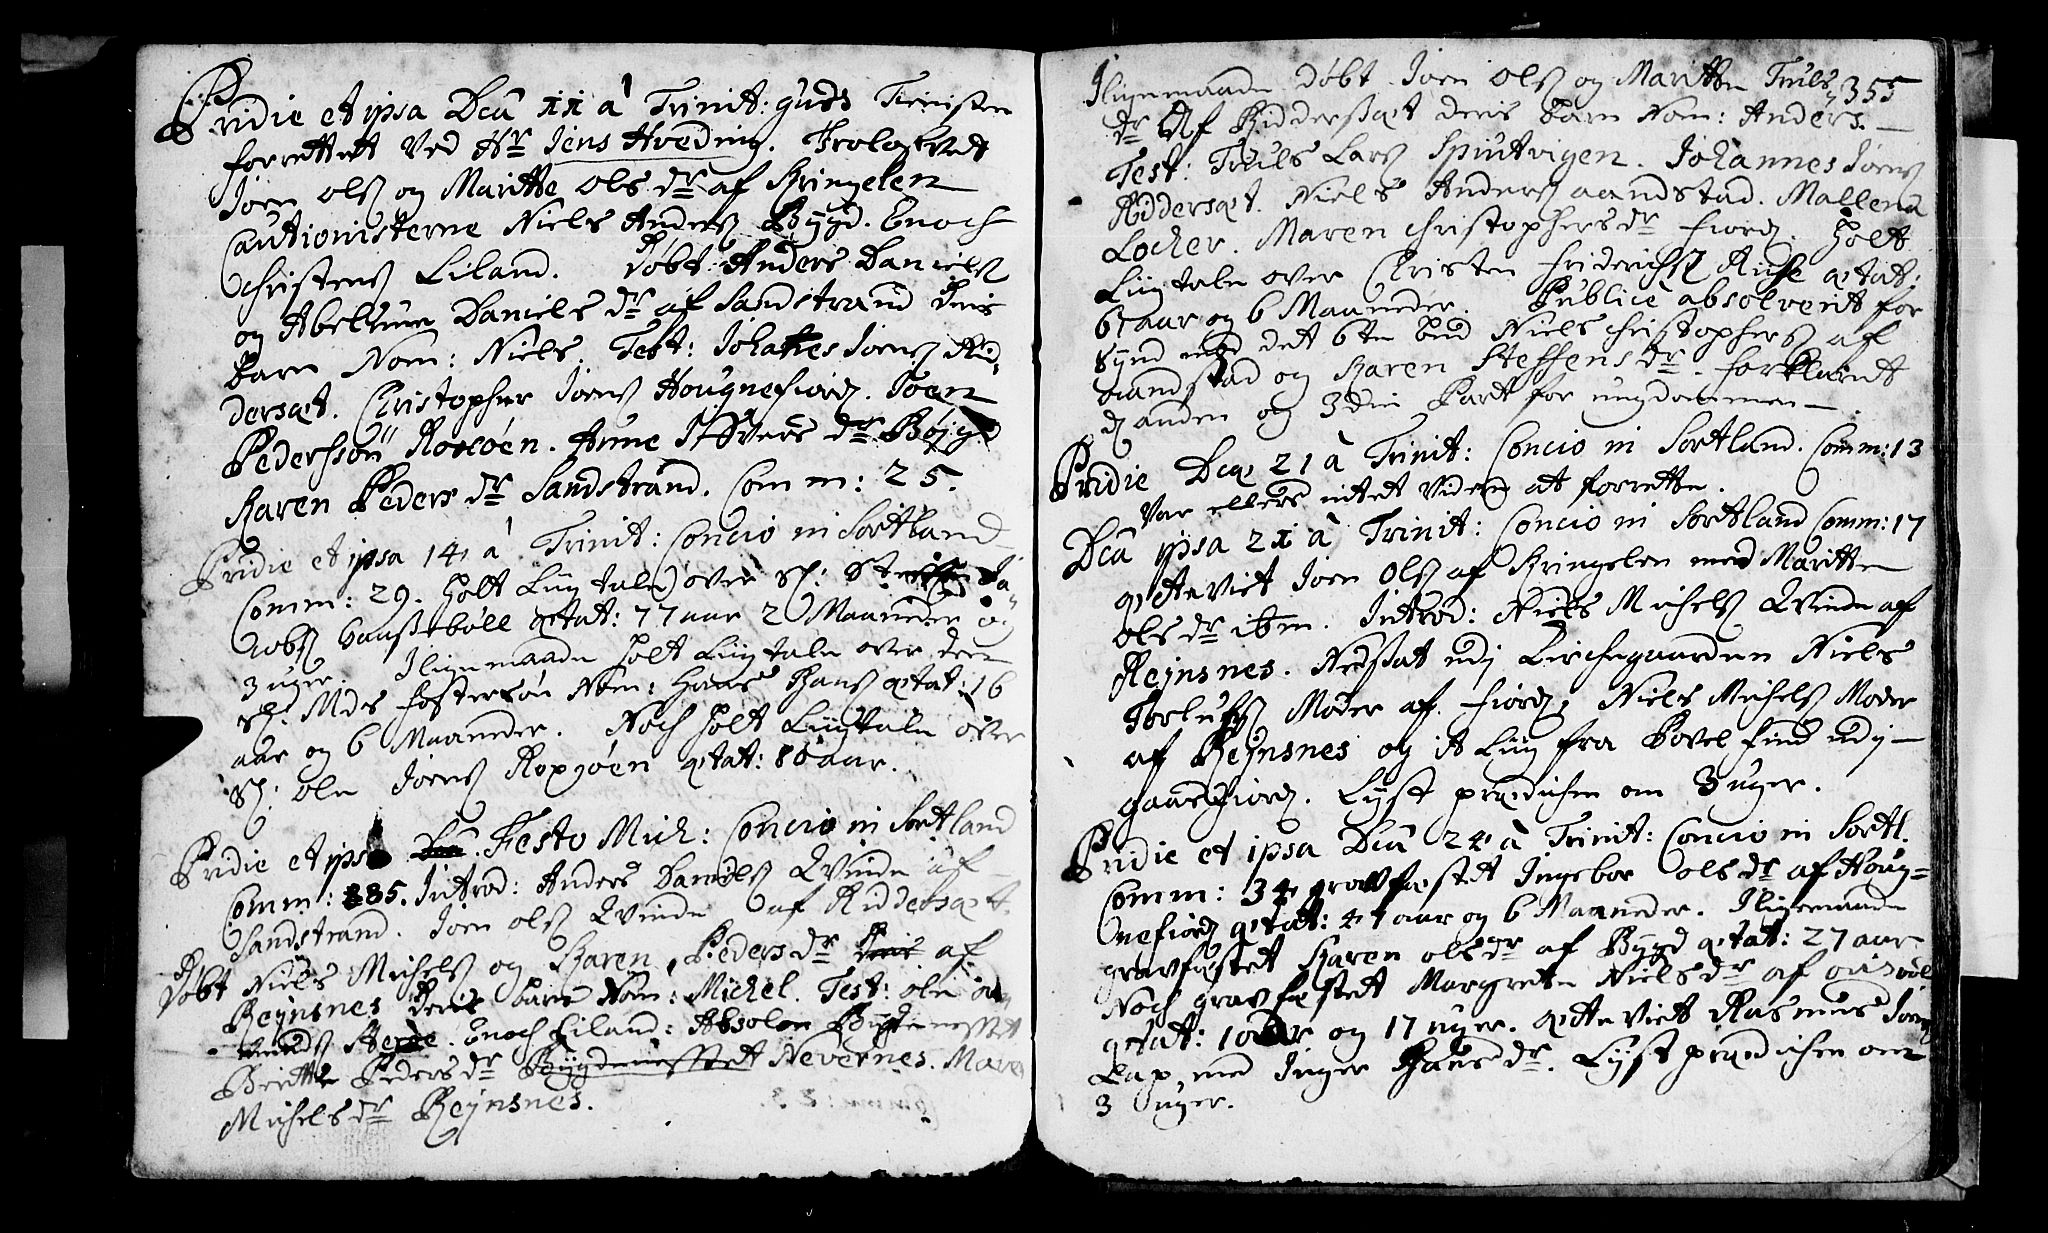 Pridie et ipsa Dca 11 à Trinit: guds Tienisten
forrettet ved Hr Jens Hveding. Trolofvet
Joen Ols og Maritte Ols dr af Kringelen
Cautionisterne Niels Anders Bÿgd. Enoch
Christens Eiland. Døbt: Anders Daniels
og Abelune Daniels dr af Sandstrand deris
barn Nom: Niels. Test: Johannes Joens Rid-
dersæt. Christopher Joens Hougnefiord. Joen
Pederssøn Roesøen. Anne Ifvers dr Bøjgd
Karen Peders dr Sandstrand. Comm: 25.
Pridie et ipsa 14 à Trinit: Concio in Sortland
Comm: 29. holt Liig tale over Sl: Steffen Ja-
cobs æstat: 77 aar 2 Maaneder og
3 uger. Iligemaade holt Liigtale over den
Sl: Mds fostersøn Nom: Hans Hans ætat: 16
aar og 6 Maaneder. Noch holt Liigtale over
Sl: Ole Joens ætat: 86 aar.
Pridie et ipso Festo Mich: Concio in Sortland
Comm: 85. Introd: Anders Daniels Qvinde af
Sandstrand. Joen Ols Qvinde af Riddersæt.
Døbt Niels Michels og Karen Peders dr af
Reÿnsnes deris barn Nom: Michel. Test: Ole
Enoch Eiland: Absolon Bÿgdenesset
Beritte Peders dr Bÿgdenesset Nevernes. Maren
Michels dr Reÿnsnes.
355
Iligemaade døbt Joen Ols og Maritte Truls
dr Af Riddersæt deris barn Nom: Anders.
Test: Truls Lars Spiutvigen. Johannes Joens
Riddersæt. Niels Anders aandstad. Mallena
Locher. Maren Christophers dr fiord. Holt
Liigtale over Christen Friderichs Riise ætat:
6 aar og 6 Maaneder. Publicè absolverit for
Synd mod det 6te bud Niels Christophers af
aandstad og Karen Steffens dr. forklaret
d anden og 3die Part for ungdommen
Pridie Dcæ 21 à Trinit: Concio in Sortland. Comm: 13
Var ellers intet videre at forrette.
Dca ipsa 21 à Trinit: Concio in Sortland Comm: 17
Joen Ols af Kringelen med Maritte
Ols dr ibm. Introd: Niels Michels Qvinde af
Reÿnsnes. Nedsat udj Kirchegaarden Niels
Moder af fiord, Niels Michels Moder
af Reÿnsnes og it Liig fra Povel find udj
gaasfiord. Lyst prædichen om 3 uger.
Pridie et ipsa Dca 24 à Trinit: Concio in Sortl.
Comm: 34 gravfæstet Ingebor Ols dr af Houg-
nefiord ætat: 41 aar og 6 Maaneder. Iligemaade
gravfæstet Karen Ols dr af Bÿgd ætat: 27 aar
Noch gravfæstet Margrete Niels dr af
ætat: 10 aar og 17 uger. Rasmus Joens
Lap med Inger Hans dr. Lyst prædichen om
3 uger.